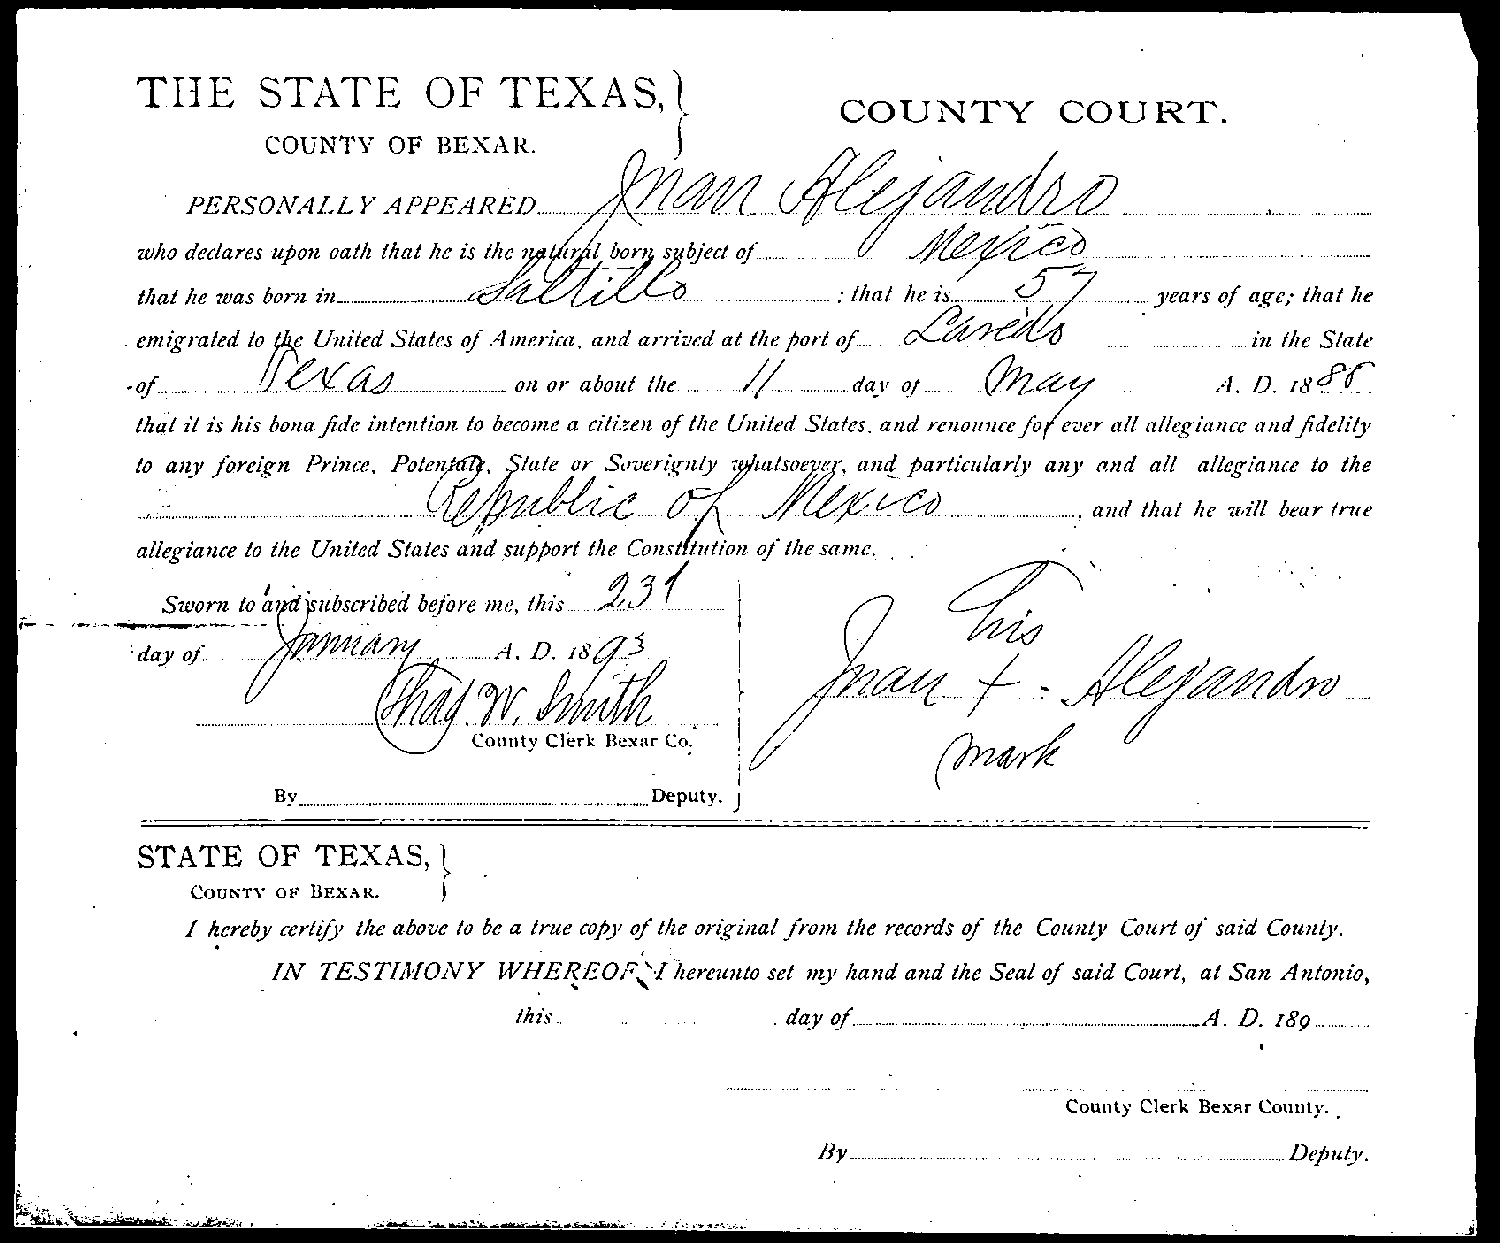 THE STATE OF TEXAS,
COUNTY OF BEXAR.
COUNTY COURT.
PERSONALLY APPEARED Juan Alejandro
who declares upon oath that he is the natural born subject of Mexico
that he was born in Saltillo ; that he is 57 years of age; that he
emigrated to the United States of America, and arrived at the port of Laredo in the State
of Texas on or about the 11 day of May A. D. 188
that it is his bona fide intention to become a citizen of the United States, and renounce for ever all allegiance and fidelity
to any foreign Prince, Potentate, State or Soverignty whatsoever, and particularly any and all allegiance to the
Republic of Mexico , and that he will bear true
allegiance to the United States and support the Constitution of the same.
Sworn to and subscribed before me, this 23
day of January A. D. 1893
Thad. W. Smith
County Clerk Bexar Co.
By Deputy.
his
Juan + Alejandro
mark
STATE OF TEXAS,
COUNTY OF BEXAR.
I hereby certify the above to be a true copy of the original from the records of the County Court of said County.
IN TESTIMONY WHEREOF, I hereunto set my hand and the Seal of said Court, at San Antonio,
this day of A. D. 189
County Clerk Bexar County.
By Deputy.